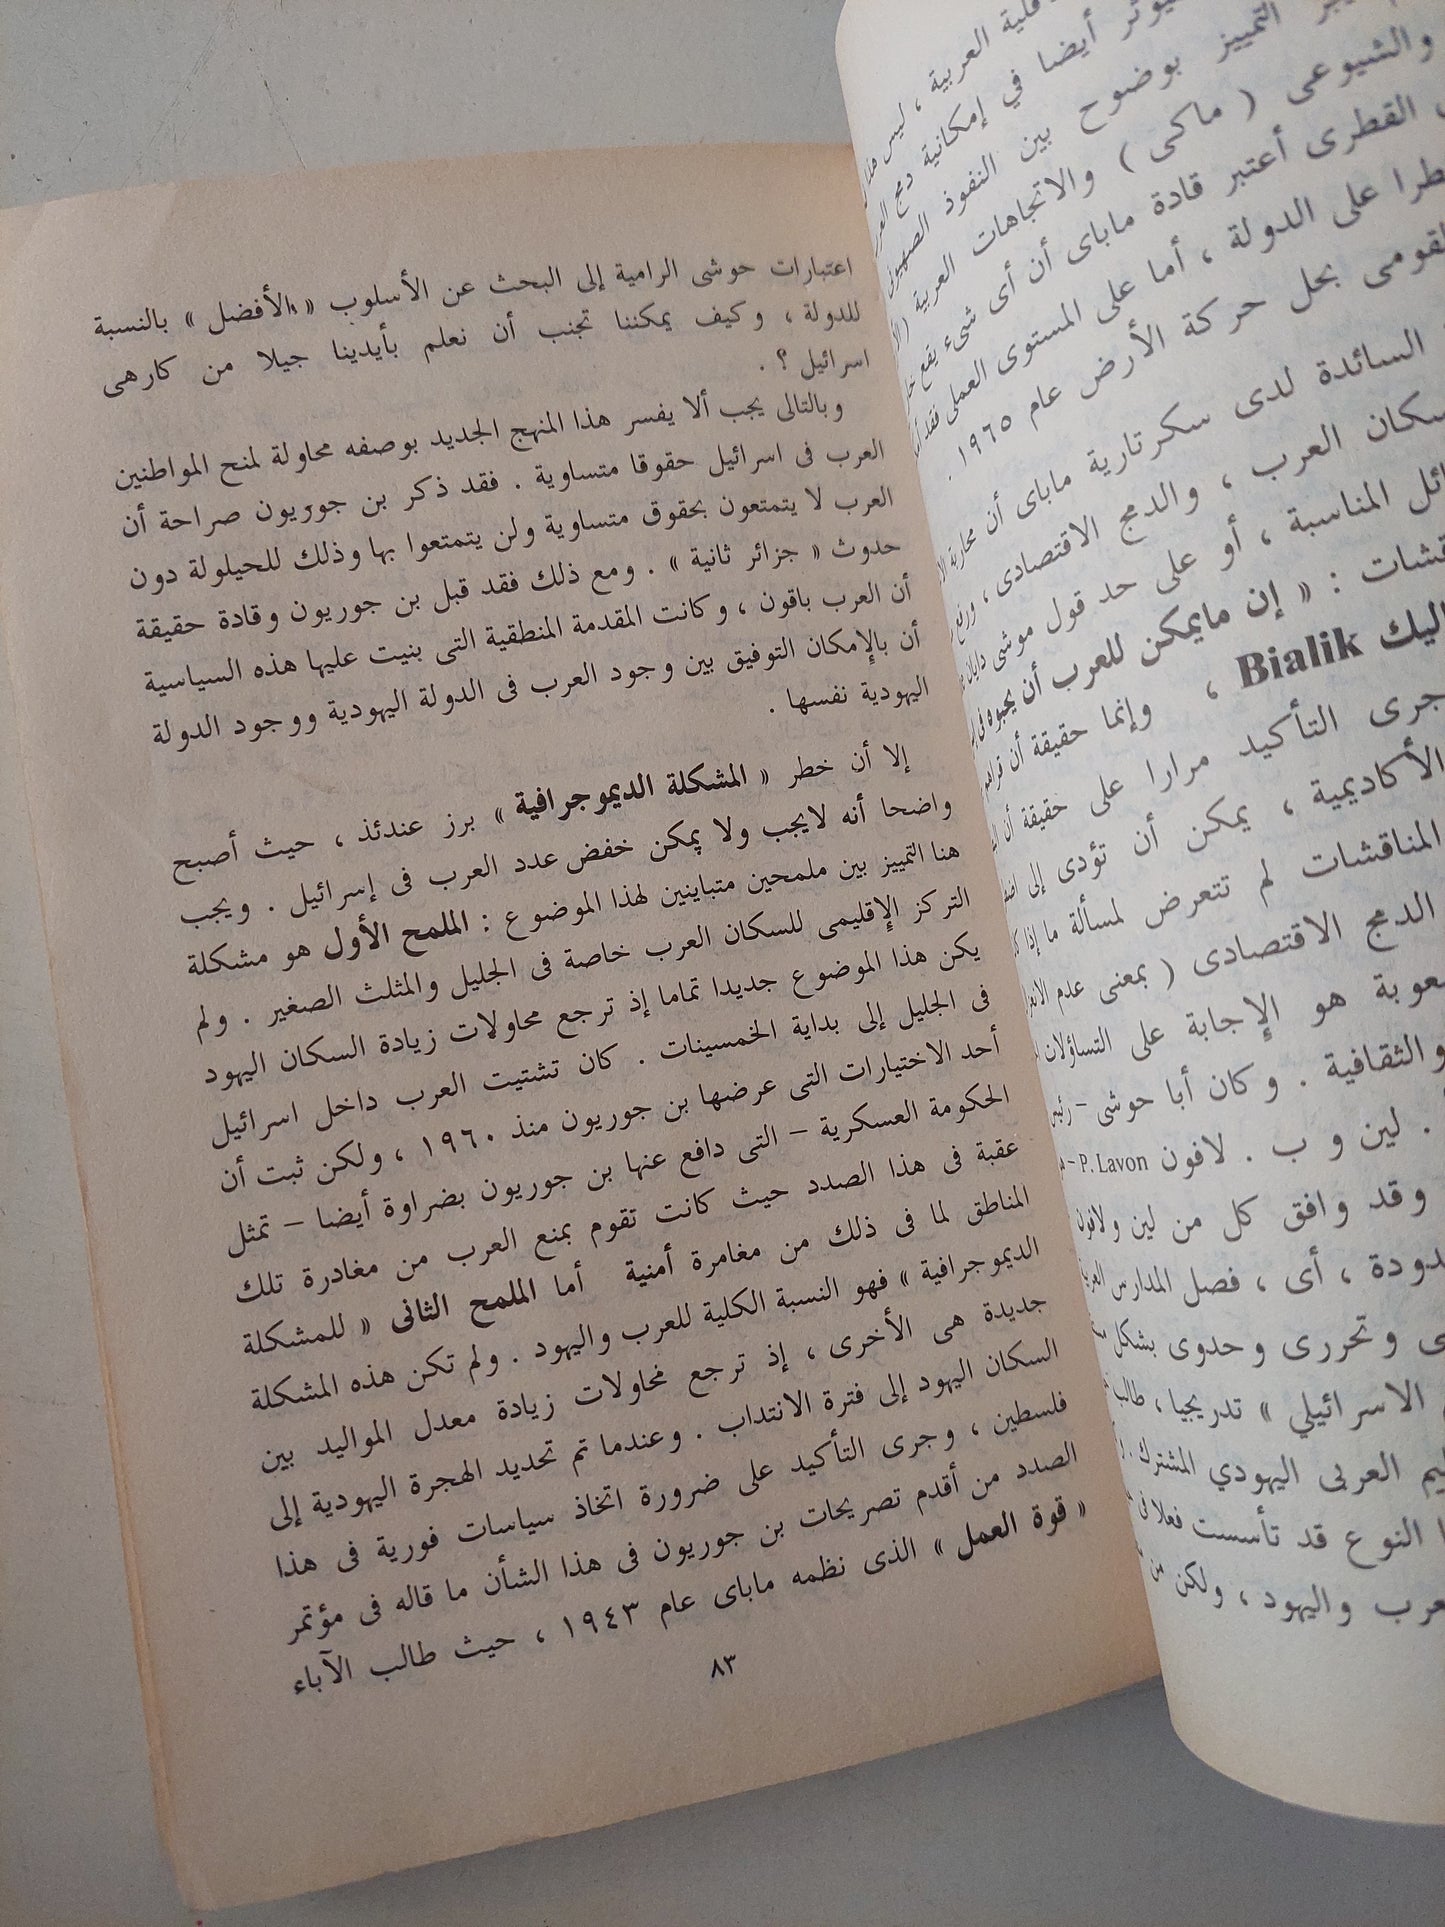 قلية العربية ، ليس هذا
يوثر أيضا في إمكانية دمج العر
التمييز بوضوح بين النفوذ الصهيون
والشيوعى ( ماكى ) والاتجاهات العربية
القطرى أعتبر قادة ماباى أن أى شىء يقع خار
طرا على الدولة ، أما على المستوى العملى فقد
لقومى بحل حركة الأرض عام ١٩٦٥ .
السائدة لدى سكرتارية ماباى أن محاربة
سكان العرب ، والدمج الاقتصادى ، ورفع
ائل المناسبة ، أو على حد قول موشى دايان
قشات : « إن مايمكن للعرب أن يحبوه فى
اليك Bialik ، وإنما حقيقة أن قراهم
جرى التأكيد مرارا على حقيقة أن
الأكاديمية ، يمكن أن تؤدى إلى
المناقشات لم تتعرض لمسألة ما إذا
الدمج الاقتصادى ( بمعنى عدم
عوبة هو الإجابة على التساؤلات
والثقافية . وكان أبا حوشى – رئيس
. لين و ب . لافون P. Lavon –
وقد وافق كل من لين ولافون
دودة ، أى ، فصل المدارس العربية
ى وتحررى وحدوى بشكل
الاسرائيلي » تدريجيا ، طالب
يم العربى اليهودي المشترك .
ا النوع قد تأسست فعلا فى
عرب واليهود ، ولكن من
اعتبارات حوشى الرامية إلى البحث عن الأسلوب « الأفضل » بالنسبة
للدولة ، وكيف يمكننا تجنب أن نعلم بأيدينا جيلا من كارهى
اسرائيل ؟ .
وبالتالى يجب ألا يفسر هذا المنهج الجديد بوصفه محاولة لمنح المواطنين
العرب فى اسرائيل حقوقا متساوية . فقد ذكر بن جوريون صراحة أن
العرب لا يتمتعون بحقوق متساوية ولن يتمتعوا بها وذلك للحيلولة دون
حدوث « جزائر ثانية » . ومع ذلك فقد قبل بن جوريون وقادة حقيقة
أن العرب باقون ، وكانت المقدمة المنطقية التى بنيت عليها هذه السياسية
أن بالإمكان التوفيق بين وجود العرب فى الدولة اليهودية ووجود الدولة
اليهودية نفسها .
إلا أن خطر « المشكلة الديموجرافية » برز عندئذ ، حيث أصبح
واضحا أنه لايجب ولا يمكن خفض عدد العرب فى إسرائيل . ويجب
هنا التمييز بين ملمحين متباينين لهذا الموضوع : الملمح الأول هو مشكلة
التركز الإقليمى للسكان العرب خاصة فى الجليل والمثلث الصغير . ولم
يكن هذا الموضوع جديدا تماما إذ ترجع محاولات زيادة السكان اليهود
فى الجليل إلى بداية الخمسينات . كان تشتيت العرب داخل اسرائيل
أحد الاختيارات التى عرضها بن جوريون منذ ١٩٦٠ ، ولكن ثبت أن
الحكومة العسكرية – التى دافع عنها بن جوريون بضراوة أيضا – تمثل
عقبة فى هذا الصدد حيث كانت تقوم بمنع العرب من مغادرة تلك
المناطق لما فى ذلك من مغامرة أمنية أما الملمح الثانى « للمشكلة
الديموجرافية » فهو النسبة الكلية للعرب واليهود . ولم تكن هذه المشكلة
جديدة هى الأخرى ، إذ ترجع محاولات زيادة معدل المواليد بين
السكان اليهود إلى فترة الانتداب . وعندما تم تحديد الهجرة اليهودية إلى
فلسطين ، وجرى التأكيد على ضرورة اتخاذ سياسات فورية فى هذا
الصدد من أقدم تصريحات بن جوريون فى هذا الشأن ما قاله فى مؤتمر
« قوة العمل » الذى نظمه ماباى عام ١٩٤٣ ، حيث طالب الآباء
٨٣